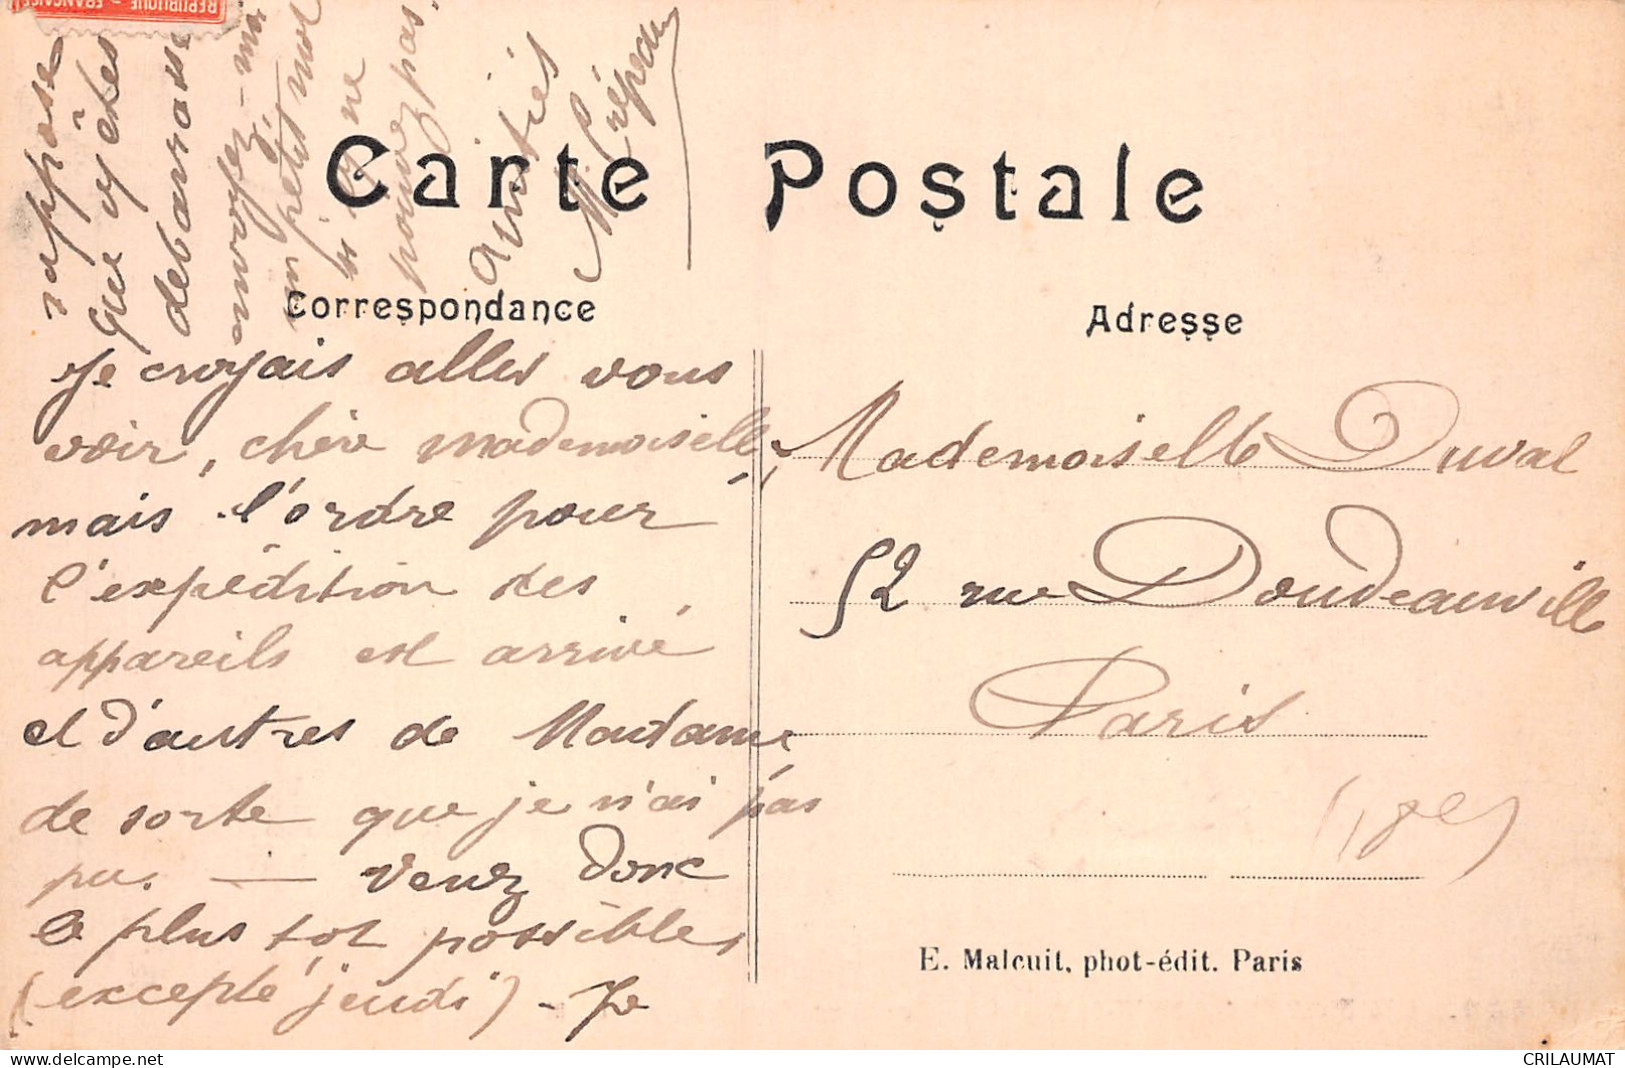 RÉPUBLIQUE - FRANÇAISE
Carte Postale
Correspondance
Adresse
Je croyais aller vous
voir, chère mademoiselle,
mais l'ordre pour
l'expédition des
appareils est arrivé
et d'autres de Madame
de sorte que je n'ai pas
pu. — Venez donc
le plus tôt possible,
(excepté jeudi) - Je
suppose
que v/ êtes
débarrassée
envoyez-moi
un petit mot
si v/ ne
pouvez pas.
Amitiés
M. Crépeau
Mademoiselle Duval
52 rue Doudeauville
Paris
E. Malcuit, phot-édit. Paris
CRILAUMAT